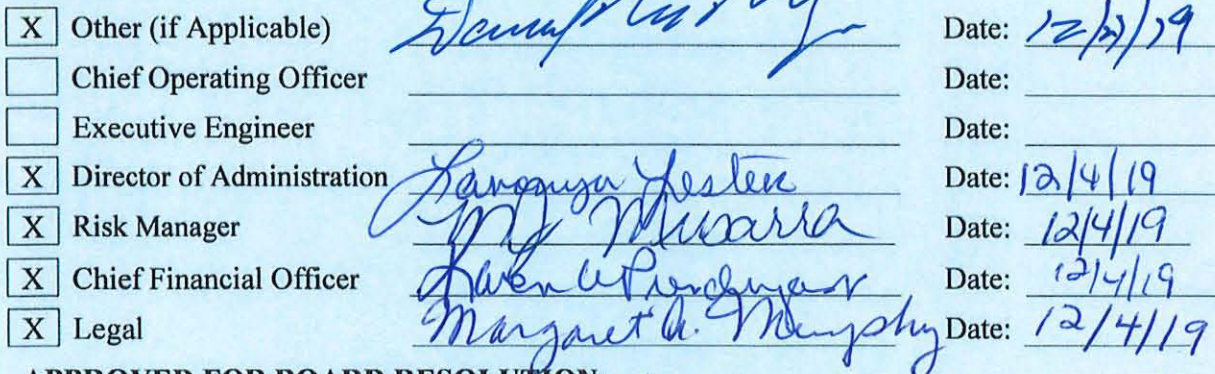 X Other (if Applicable) Date: 12/3/19
Chief Operating Officer Date:
Executive Engineer Date:
X Director of Administration Lester Date: 12/4/19
X Risk Manager MJ Musarra Date: 12/4/19
X Chief Financial Officer Karen Date: 12/4/19
X Legal Margaret A. Murphy Date: 12/4/19
APPROVED FOR BOARD RESOLUTION